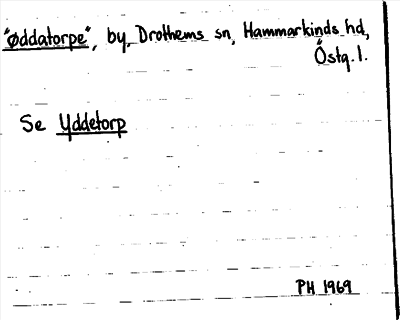 "Øddatorpe", by, Drothems sn, Hammarkinds hd,
Östg. l.
Se Yddetorp
PH 1969